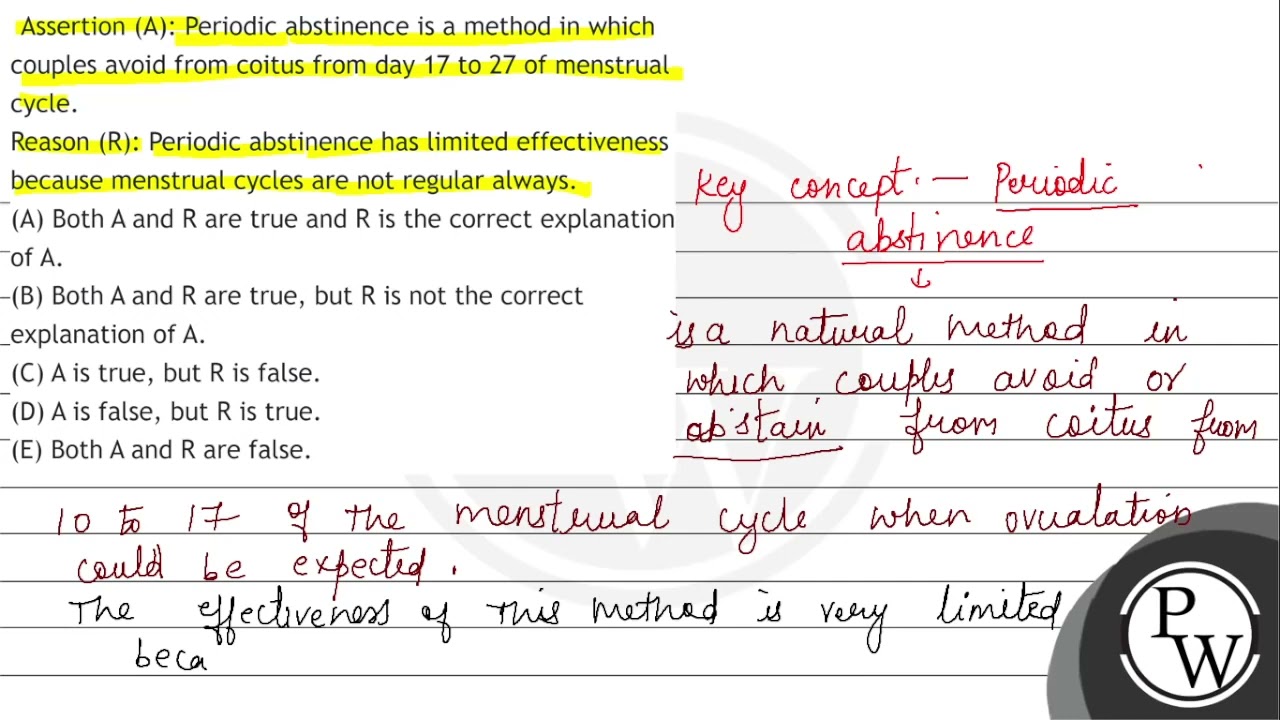 Assertion (A): Periodic abstinence is a method in which
couples avoid from coitus from day 17 to 27 of menstrual
cycle.
Reason (R): Periodic abstinence has limited effectiveness
because menstrual cycles are not regular always.
(A) Both A and R are true and R is the correct explanation
of A.
(B) Both A and R are true, but R is not the correct
explanation of A.
(C) A is true, but R is false.
(D) A is false, but R is true.
(E) Both A and R are false.
Key concept :- Periodic
abstinence
↓
is a natural method in
which couples avoid or
abstain from coitus from
10 to 17 of the menstrual cycle when ovulation
could be expected.
The effectiveness of this method is very limited
beca
P
W